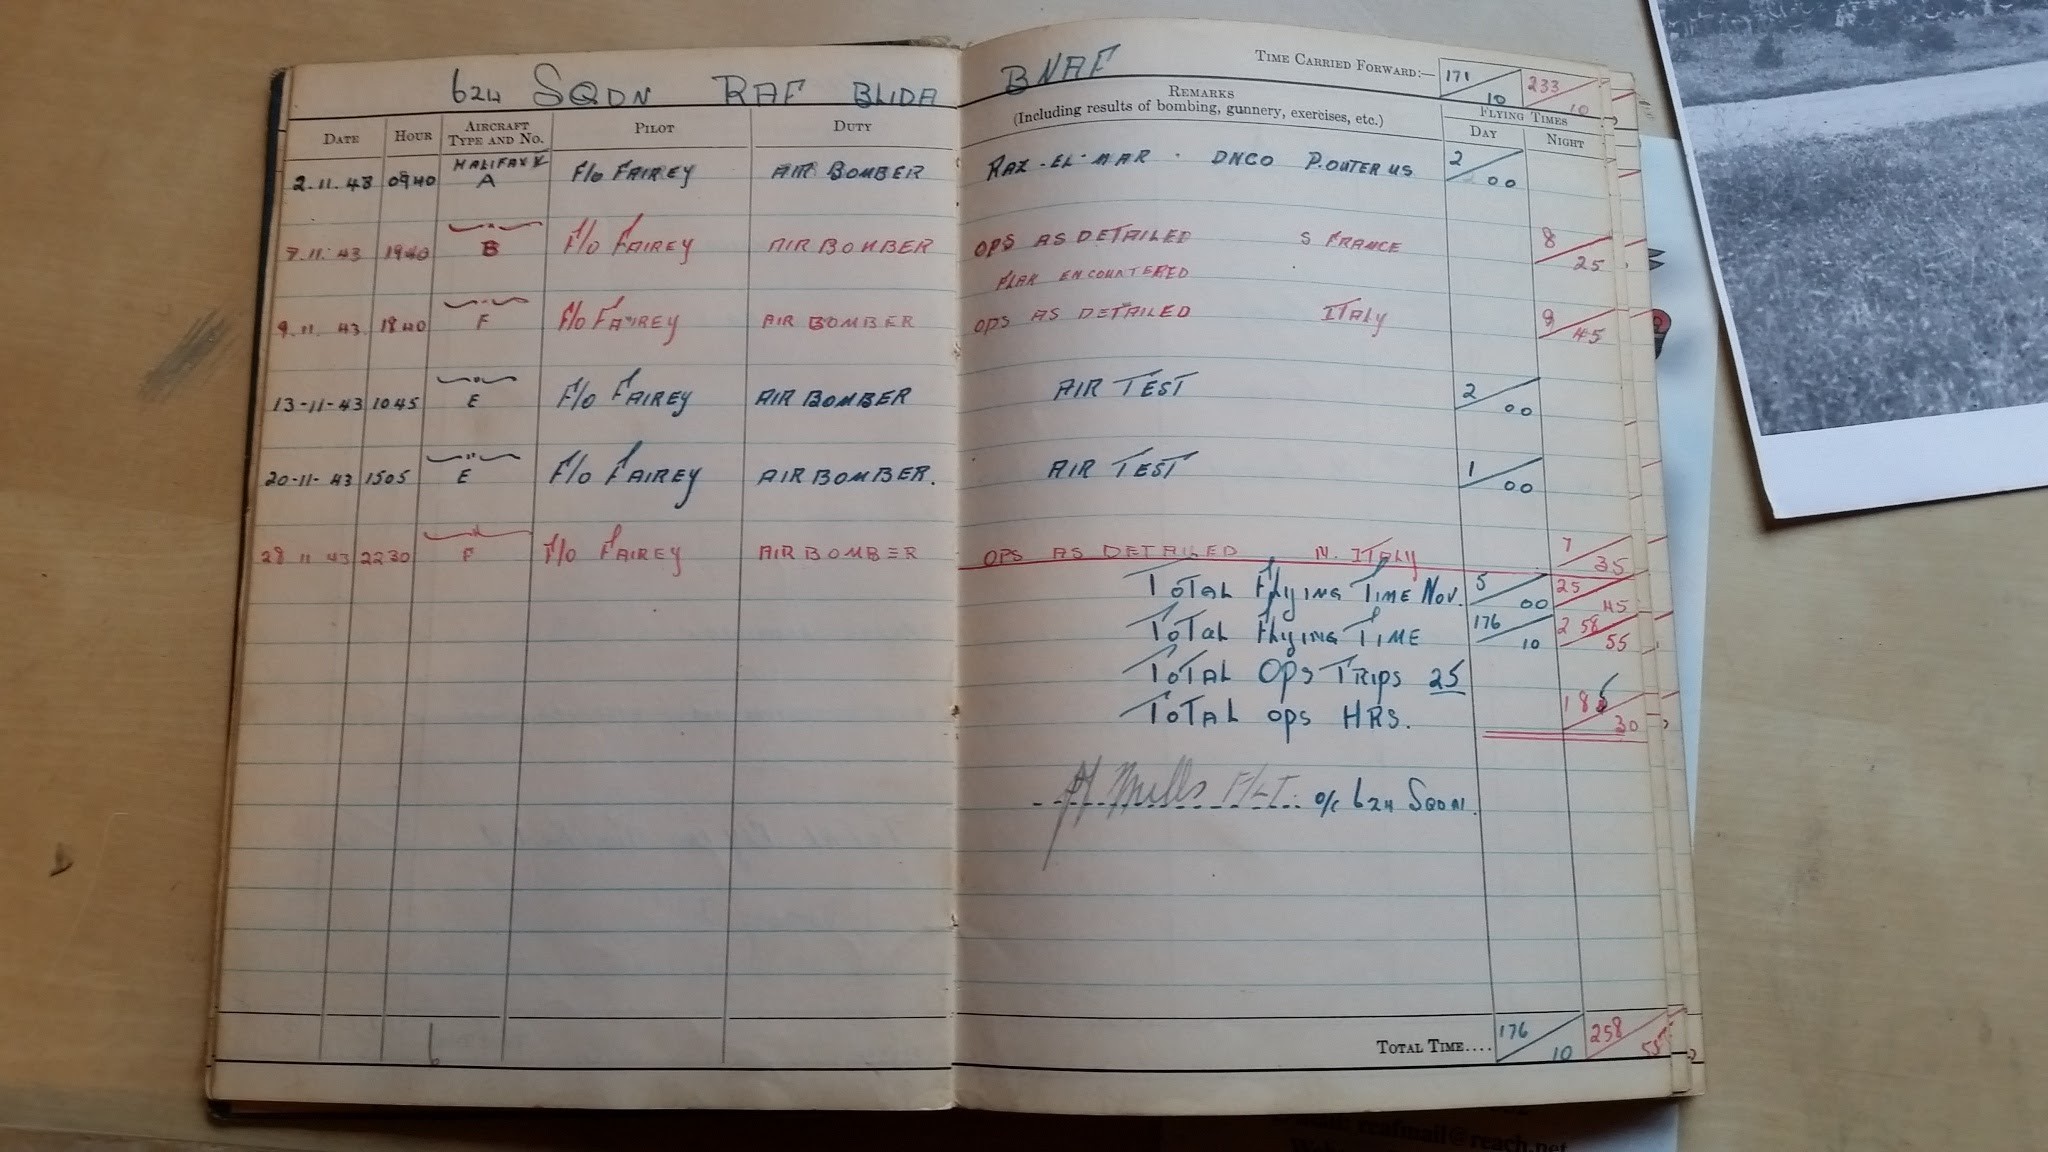 624 SQDN RAF BLIDA BNAF TIME CARRIED FORWARD:— 171/10 233/10
DATE HOUR AIRCRAFT TYPE AND NO. PILOT DUTY REMARKS (Including results of bombing, gunnery, exercises, etc.) FLYING TIMES DAY NIGHT
2.11.43 0940 HALIFAX V A F/o FAIREY AIR BOMBER RAZ-EL-MAR · DNCO P.OUTER US 2/00
7.11.43 1940 —"— B F/o FAIREY AIR BOMBER OPS AS DETAILED S FRANCE 8/25
FLAK ENCOUNTERED
9.11.43 1840 —"— F F/o FAIREY AIR BOMBER OPS AS DETAILED ITALY 9/45
13-11-43 1045 —"— E F/o FAIREY AIR BOMBER AIR TEST 2/00
20-11-43 1505 —"— E F/o FAIREY AIR BOMBER. AIR TEST 1/00
28 11 43 2230 —"— F F/o FAIREY AIR BOMBER OPS AS DETAILED N. ITALY 7/35
TOTAL FLYING TIME NOV. 5/00 25/45
TOTAL FLYING TIME 176/10 258/55
TOTAL OPS TRIPS 25
TOTAL OPS HRS. 186/30
Mills F/LT. O/C 624 SQDN.
6
TOTAL TIME.... 176/10 258/55
reafmail@reach.net